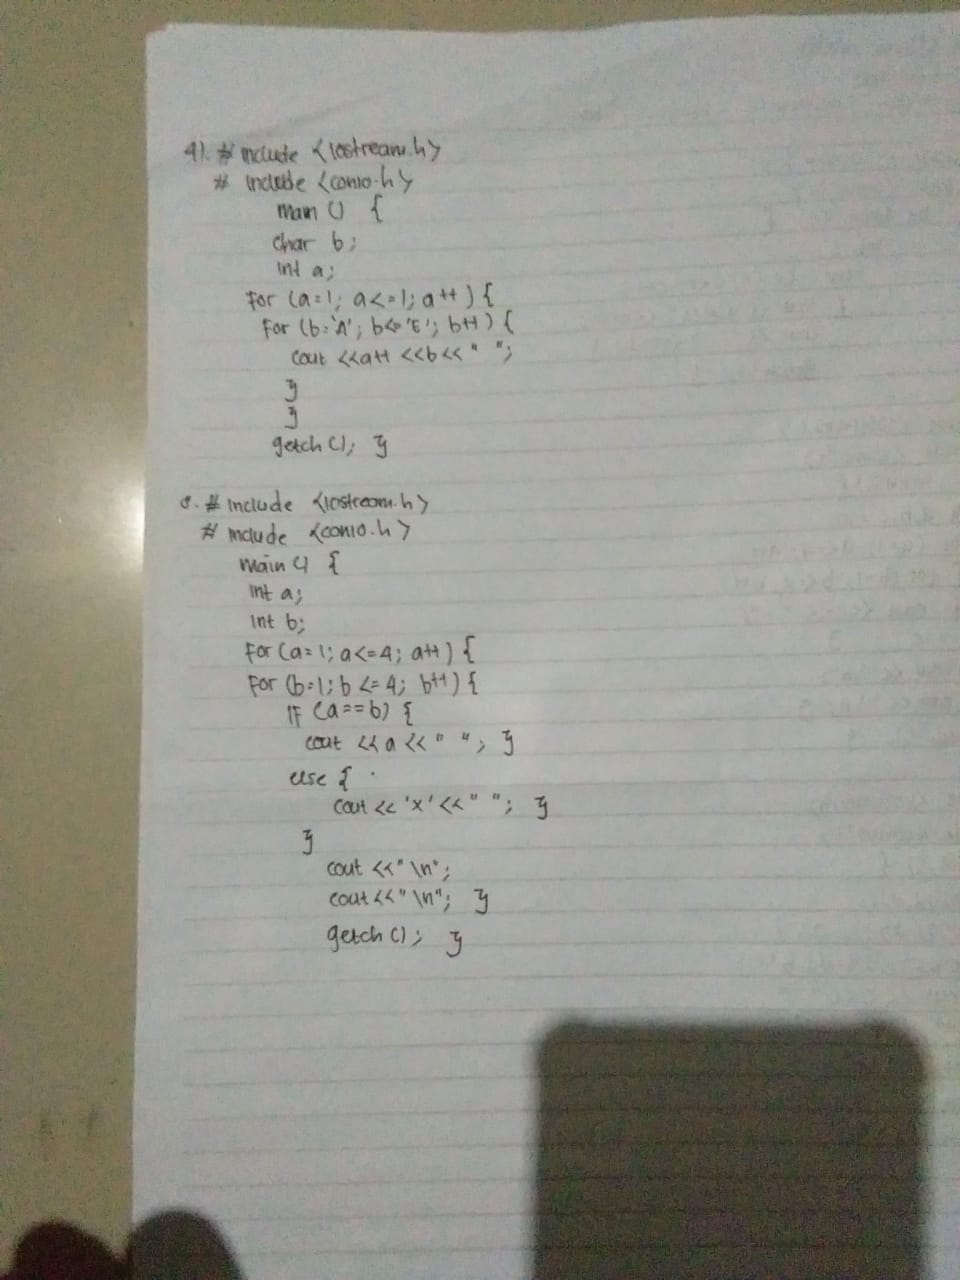 4). # include <iostream.h>
# include <conio.h>
main () {
char b;
int a;
for (a=1; a<=1; a++) {
for (b='A'; b<='E'; b++) {
cout <<a++ <<b<< " ";
}
}
getch (); }
5. # include <iostream.h>
# include <conio.h>
main () {
int a;
int b;
for (a=1; a<=4; a++) {
for (b=1; b <=4; b++) {
IF (a==b) {
cout << a << " "; }
else {
cout << 'x' << " "; }
}
cout <<"\n";
cout <<"\n"; }
getch (); }